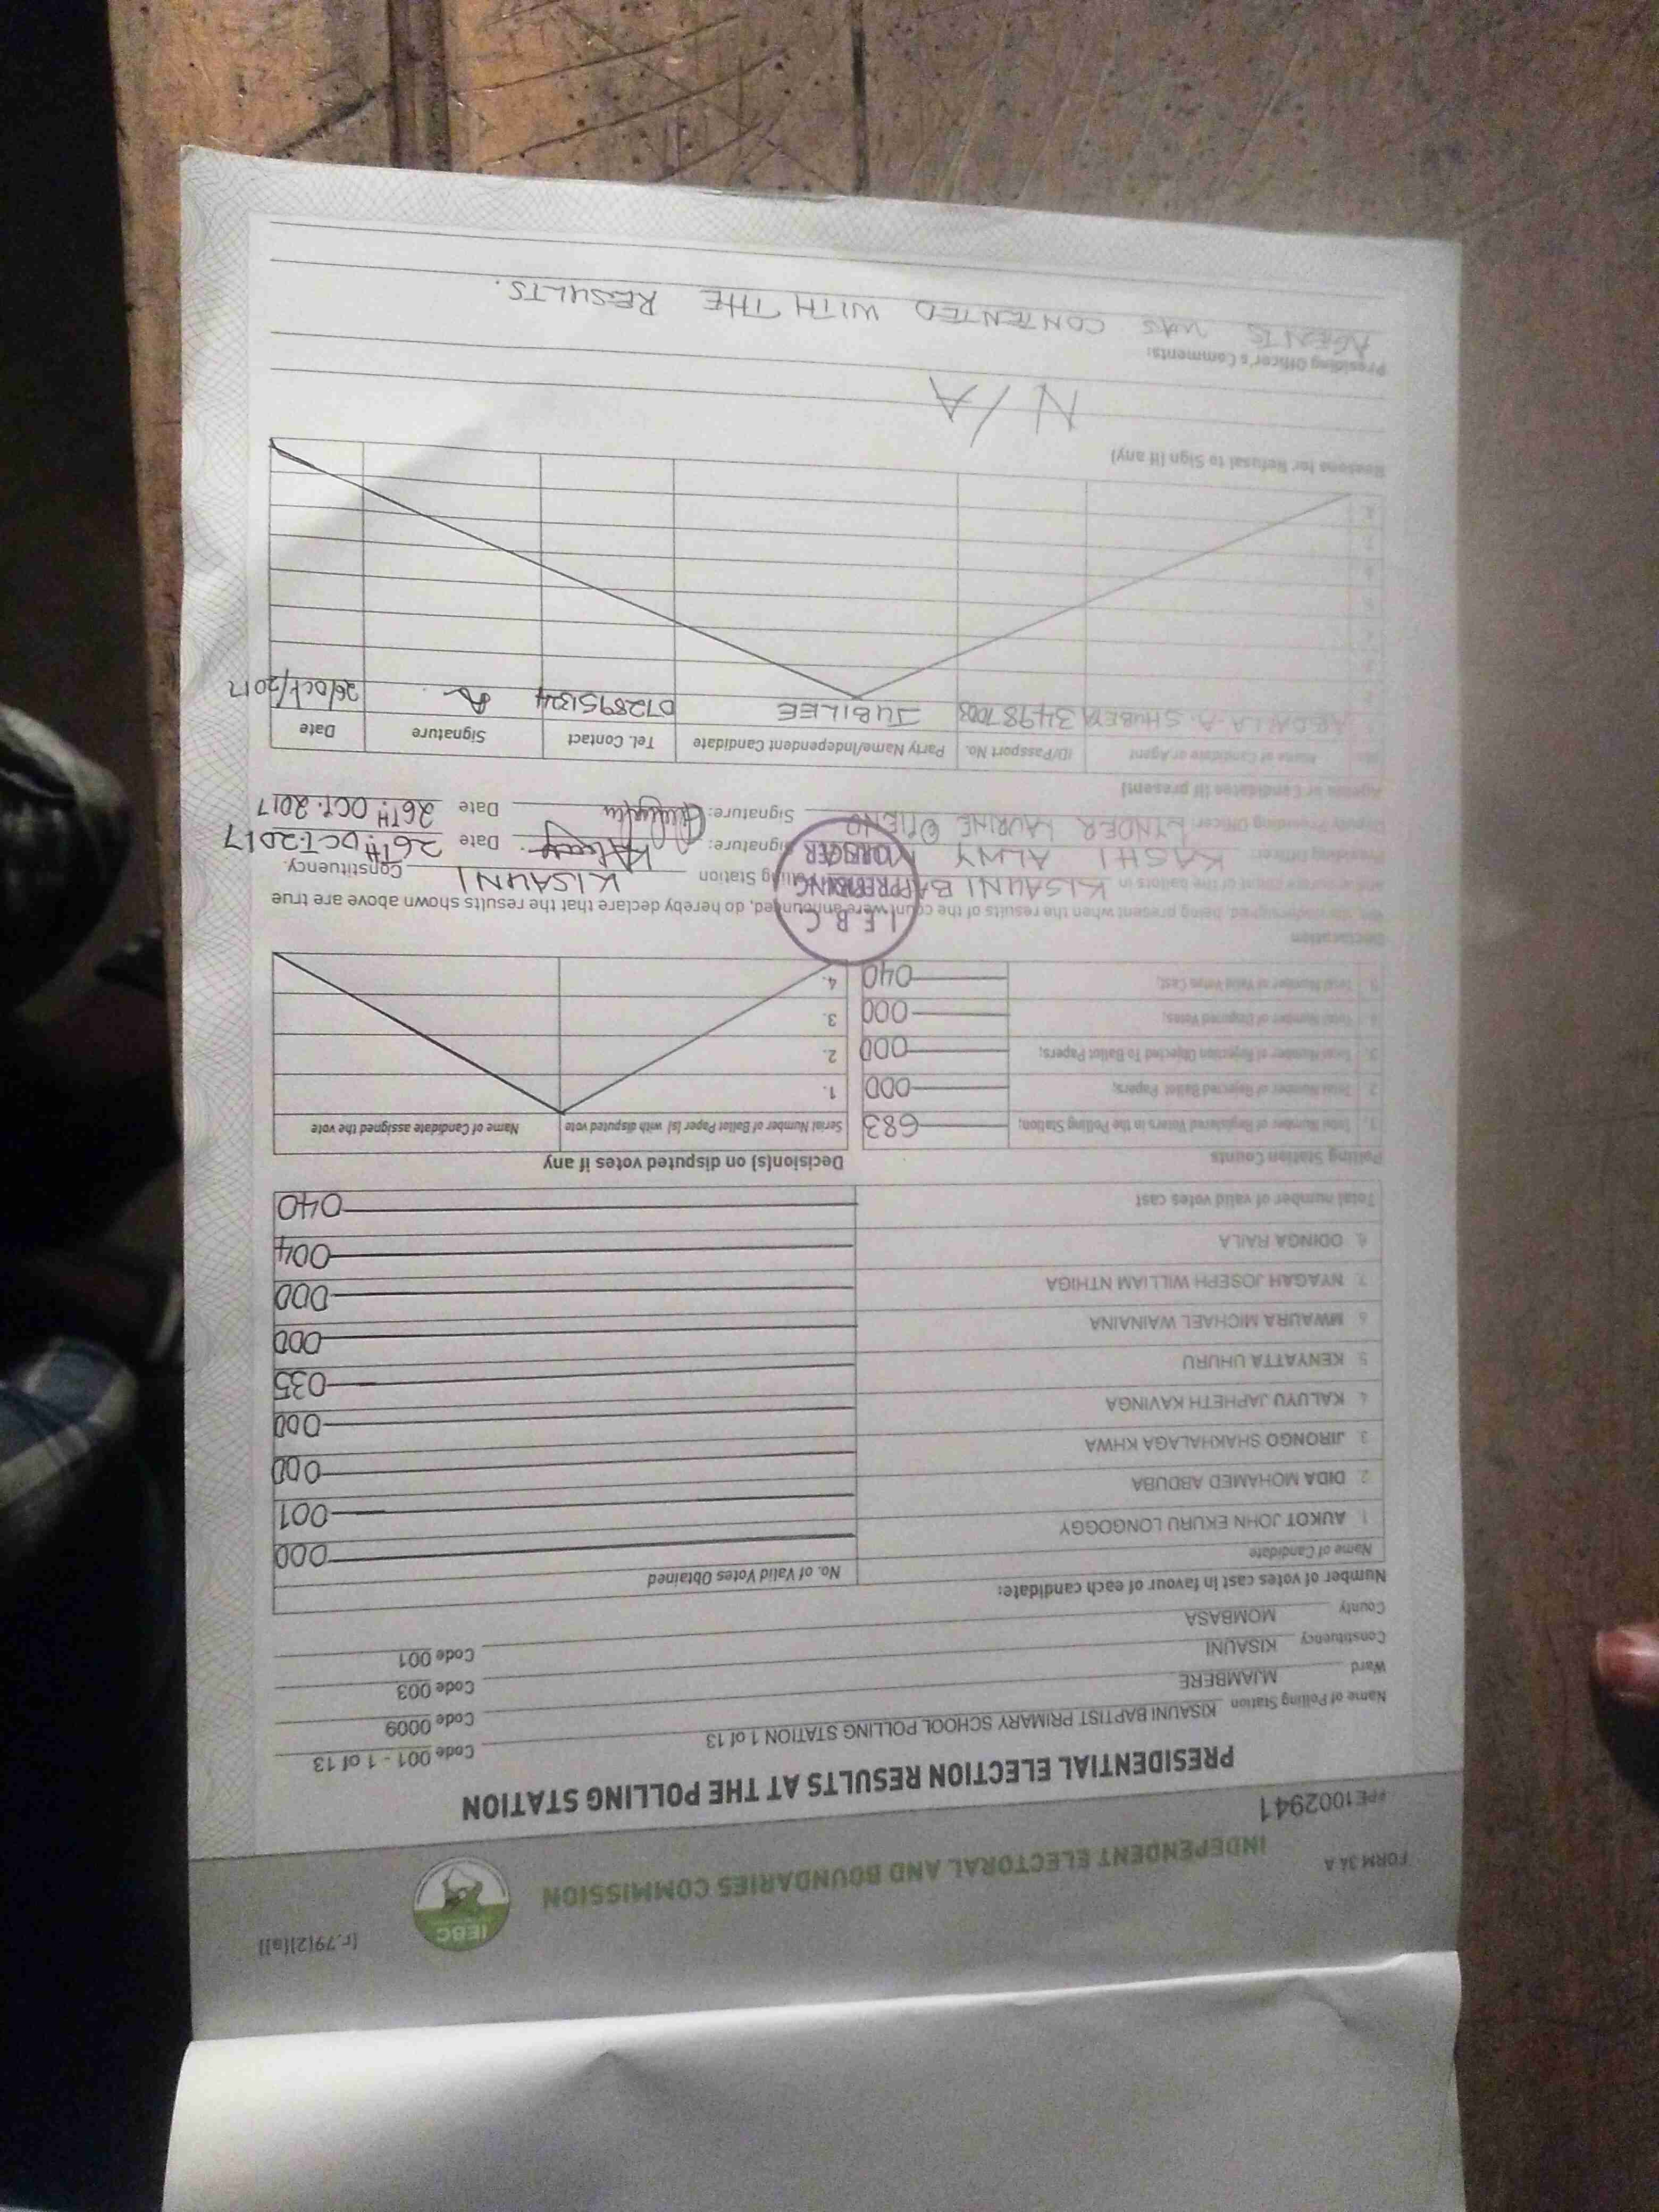 [r.79(2)(a)]
FORM 34 A
INDEPENDENT ELECTORAL AND BOUNDARIES COMMISSION
IEBC
PPE1002941
PRESIDENTIAL ELECTION RESULTS AT THE POLLING STATION
Name of Polling Station KISAUNI BAPTIST PRIMARY SCHOOL POLLING STATION 1 of 13 Code 001 - 1 of 13
Ward MJAMBERE Code 0009
Constituency KISAUNI Code 003
County MOMBASA Code 001
Number of votes cast in favour of each candidate:
Name of Candidate No. of Valid Votes Obtained
1. AUKOT JOHN EKURU LONGOGGY 000
2. DIDA MOHAMED ABDUBA 001
3. JIRONGO SHAKHALAGA KHWA 000
4. KALUYU JAPHETH KAVINGA 000
5. KENYATTA UHURU 035
6. MWAURA MICHAEL WAINAINA 000
7. NYAGAH JOSEPH WILLIAM NTHIGA 000
8. ODINGA RAILA 004
Total number of valid votes cast 040
Polling Station Counts
1. Total Number of Registered Voters in the Polling Station; 683
2. Total Number of Rejected Ballot Papers; 000
3. Total Number of Rejection Objected To Ballot Papers; 000
4. Total Number of Disputed Votes; 000
5. Total Number of Valid Votes Cast; 040
Decision(s) on disputed votes if any
Serial Number of Ballot Paper (s) with disputed vote Name of Candidate assigned the vote
1.
2.
3.
4.
Declaration
We, the undersigned, being present when the results of the count were announced, do hereby declare that the results shown above are true
and accurate count of the ballots in KISAUNI BAPTIST Polling Station KISAUNI Constituency.
Presiding Officer: KASHI ALWY Signature: Date 26TH. OCT. 2017
Deputy Presiding Officer: LYNDER LAURINE OTIENO Signature: Date 26TH. OCT. 2017
I.E.B.C
PRESIDING
OFFICER
Agents or Candidates (if present)
No. Name of Candidate or Agent ID/Passport No. Party Name/Independent Candidate Tel. Contact Signature Date
ABDALLA. A. SHUBEYA 34987003 JUBILEE 0728951324 26/OCT/2017
2.
3.
4.
5.
6.
7.
8.
Reasons for Refusal to Sign (if any)
N/A
Presiding Officer's Comments:
AGENTS WAS CONTENTED WITH THE RESULTS.